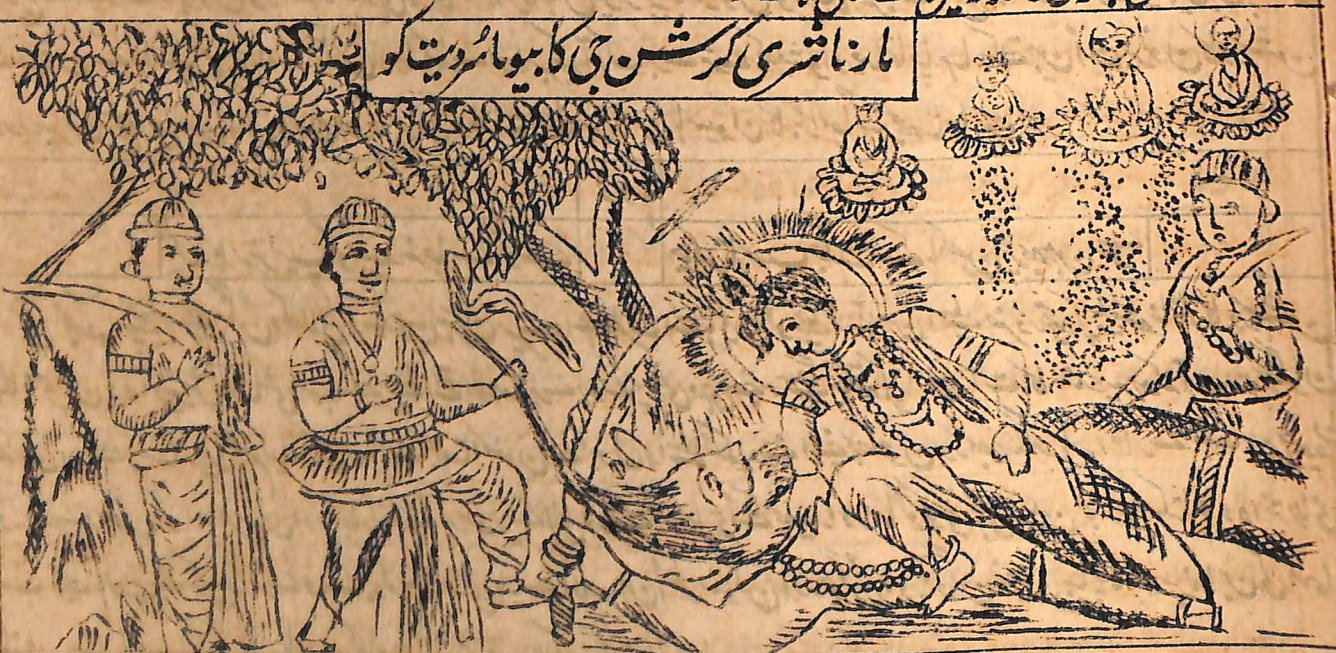 مارنا شری کرشن جی کا بیوماسُر دیت کو